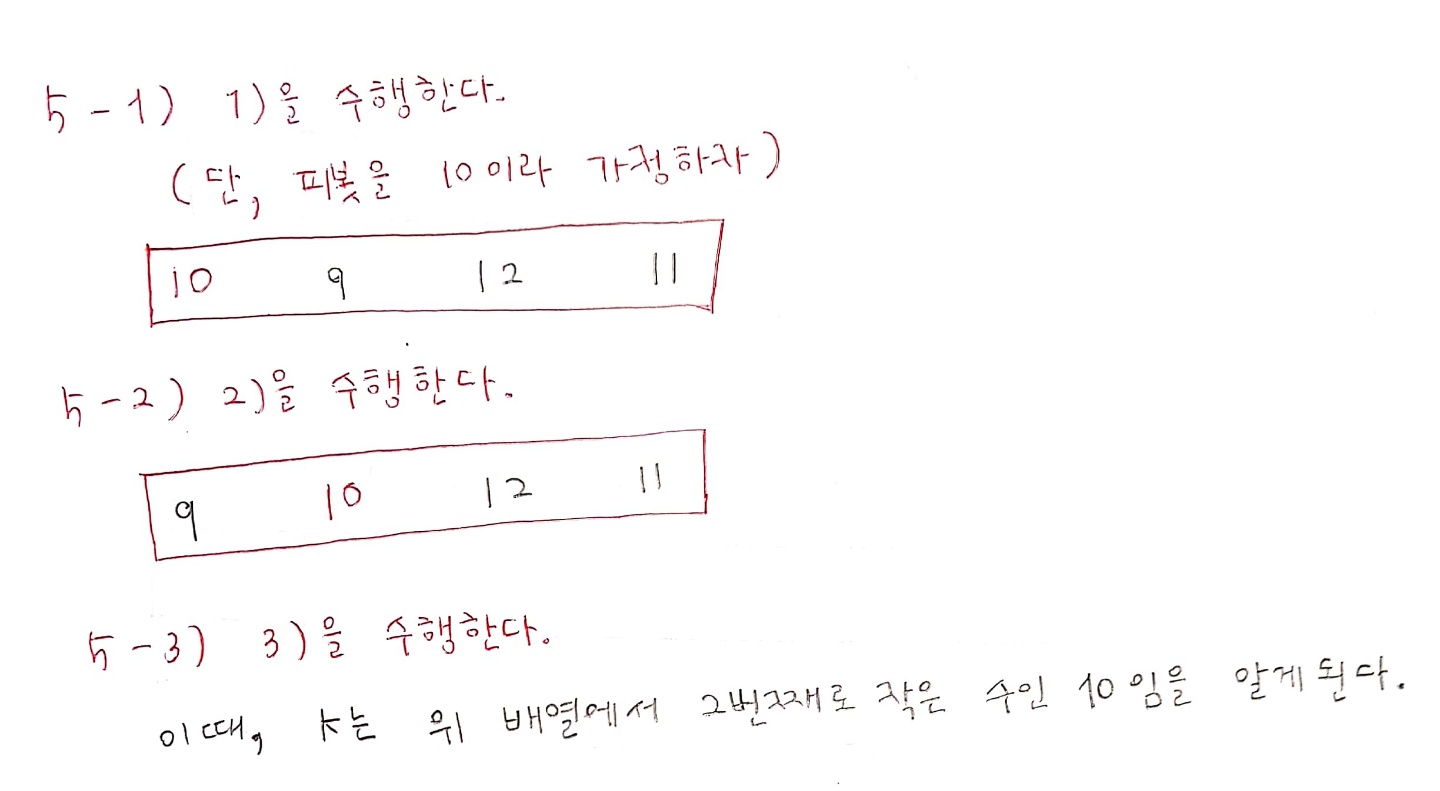 5-1) 1)을 수행한다.
(단, 피봇을 10이라 가정하자)
10 9 12 11
5-2) 2)을 수행한다.
9 10 12 11
5-3) 3)을 수행한다.
이때, k는 위 배열에서 2번째로 작은 수인 10임을 알게된다.